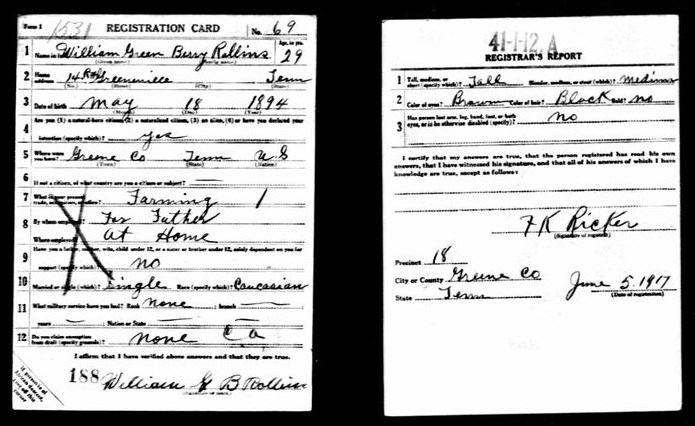 Form 1 1531 REGISTRATION CARD No. 69
1 Name in full William Green Berry Rollins Age, in yrs. 29
(Given name) (Family name)
2 Home address 14 R#4 Greeneville Tenn
(No.) (Street) (City) (State)
3 Date of birth May 18 1894
(Month) (Day) (Year)
Are you (1) a natural-born citizen, (2) a naturalized citizen, (3) an alien, (4) or have you declared your
4 intention (specify which)? yes
5 Where were you born? Greene Co Tenn U S
(Town) (State) (Nation)
6 If not a citizen, of what country are you a citizen or subject?
7 What is your present trade, occupation, or office? Farming 1
8 By whom employed? For Father
Where employed? At Home
9 Have you a father, mother, wife, child under 12, or a sister or brother under 12, solely dependent on you for
support (specify which)? no
10 Married or single (which)? Single Race (specify which)? Caucasian
11 What military service have you had? Rank None ; branch
years ; Nation or State
12 Do you claim exemption from draft (specify grounds)? none C a
I affirm that I have verified above answers and that they are true.
188 William G B Rollins
(Signature or mark)
If person is of African descent, tear off this corner
41-1-12. A
REGISTRAR'S REPORT
1 Tall, medium, or short (specify which)? Tall Slender, medium, or stout (which)? Medium
2 Color of eyes? Brown Color of hair? Black Bald? no
3 Has person lost arm, leg, hand, foot, or both eyes, or is he otherwise disabled (specify)? no
I certify that my answers are true, that the person registered has read his own
answers, that I have witnessed his signature, and that all of his answers of which I have
knowledge are true, except as follows:
F K Ricker
(Signature of registrar)
Precinct 18
City or County Greene Co
State Tenn
June 5, 1917
(Date of registration)